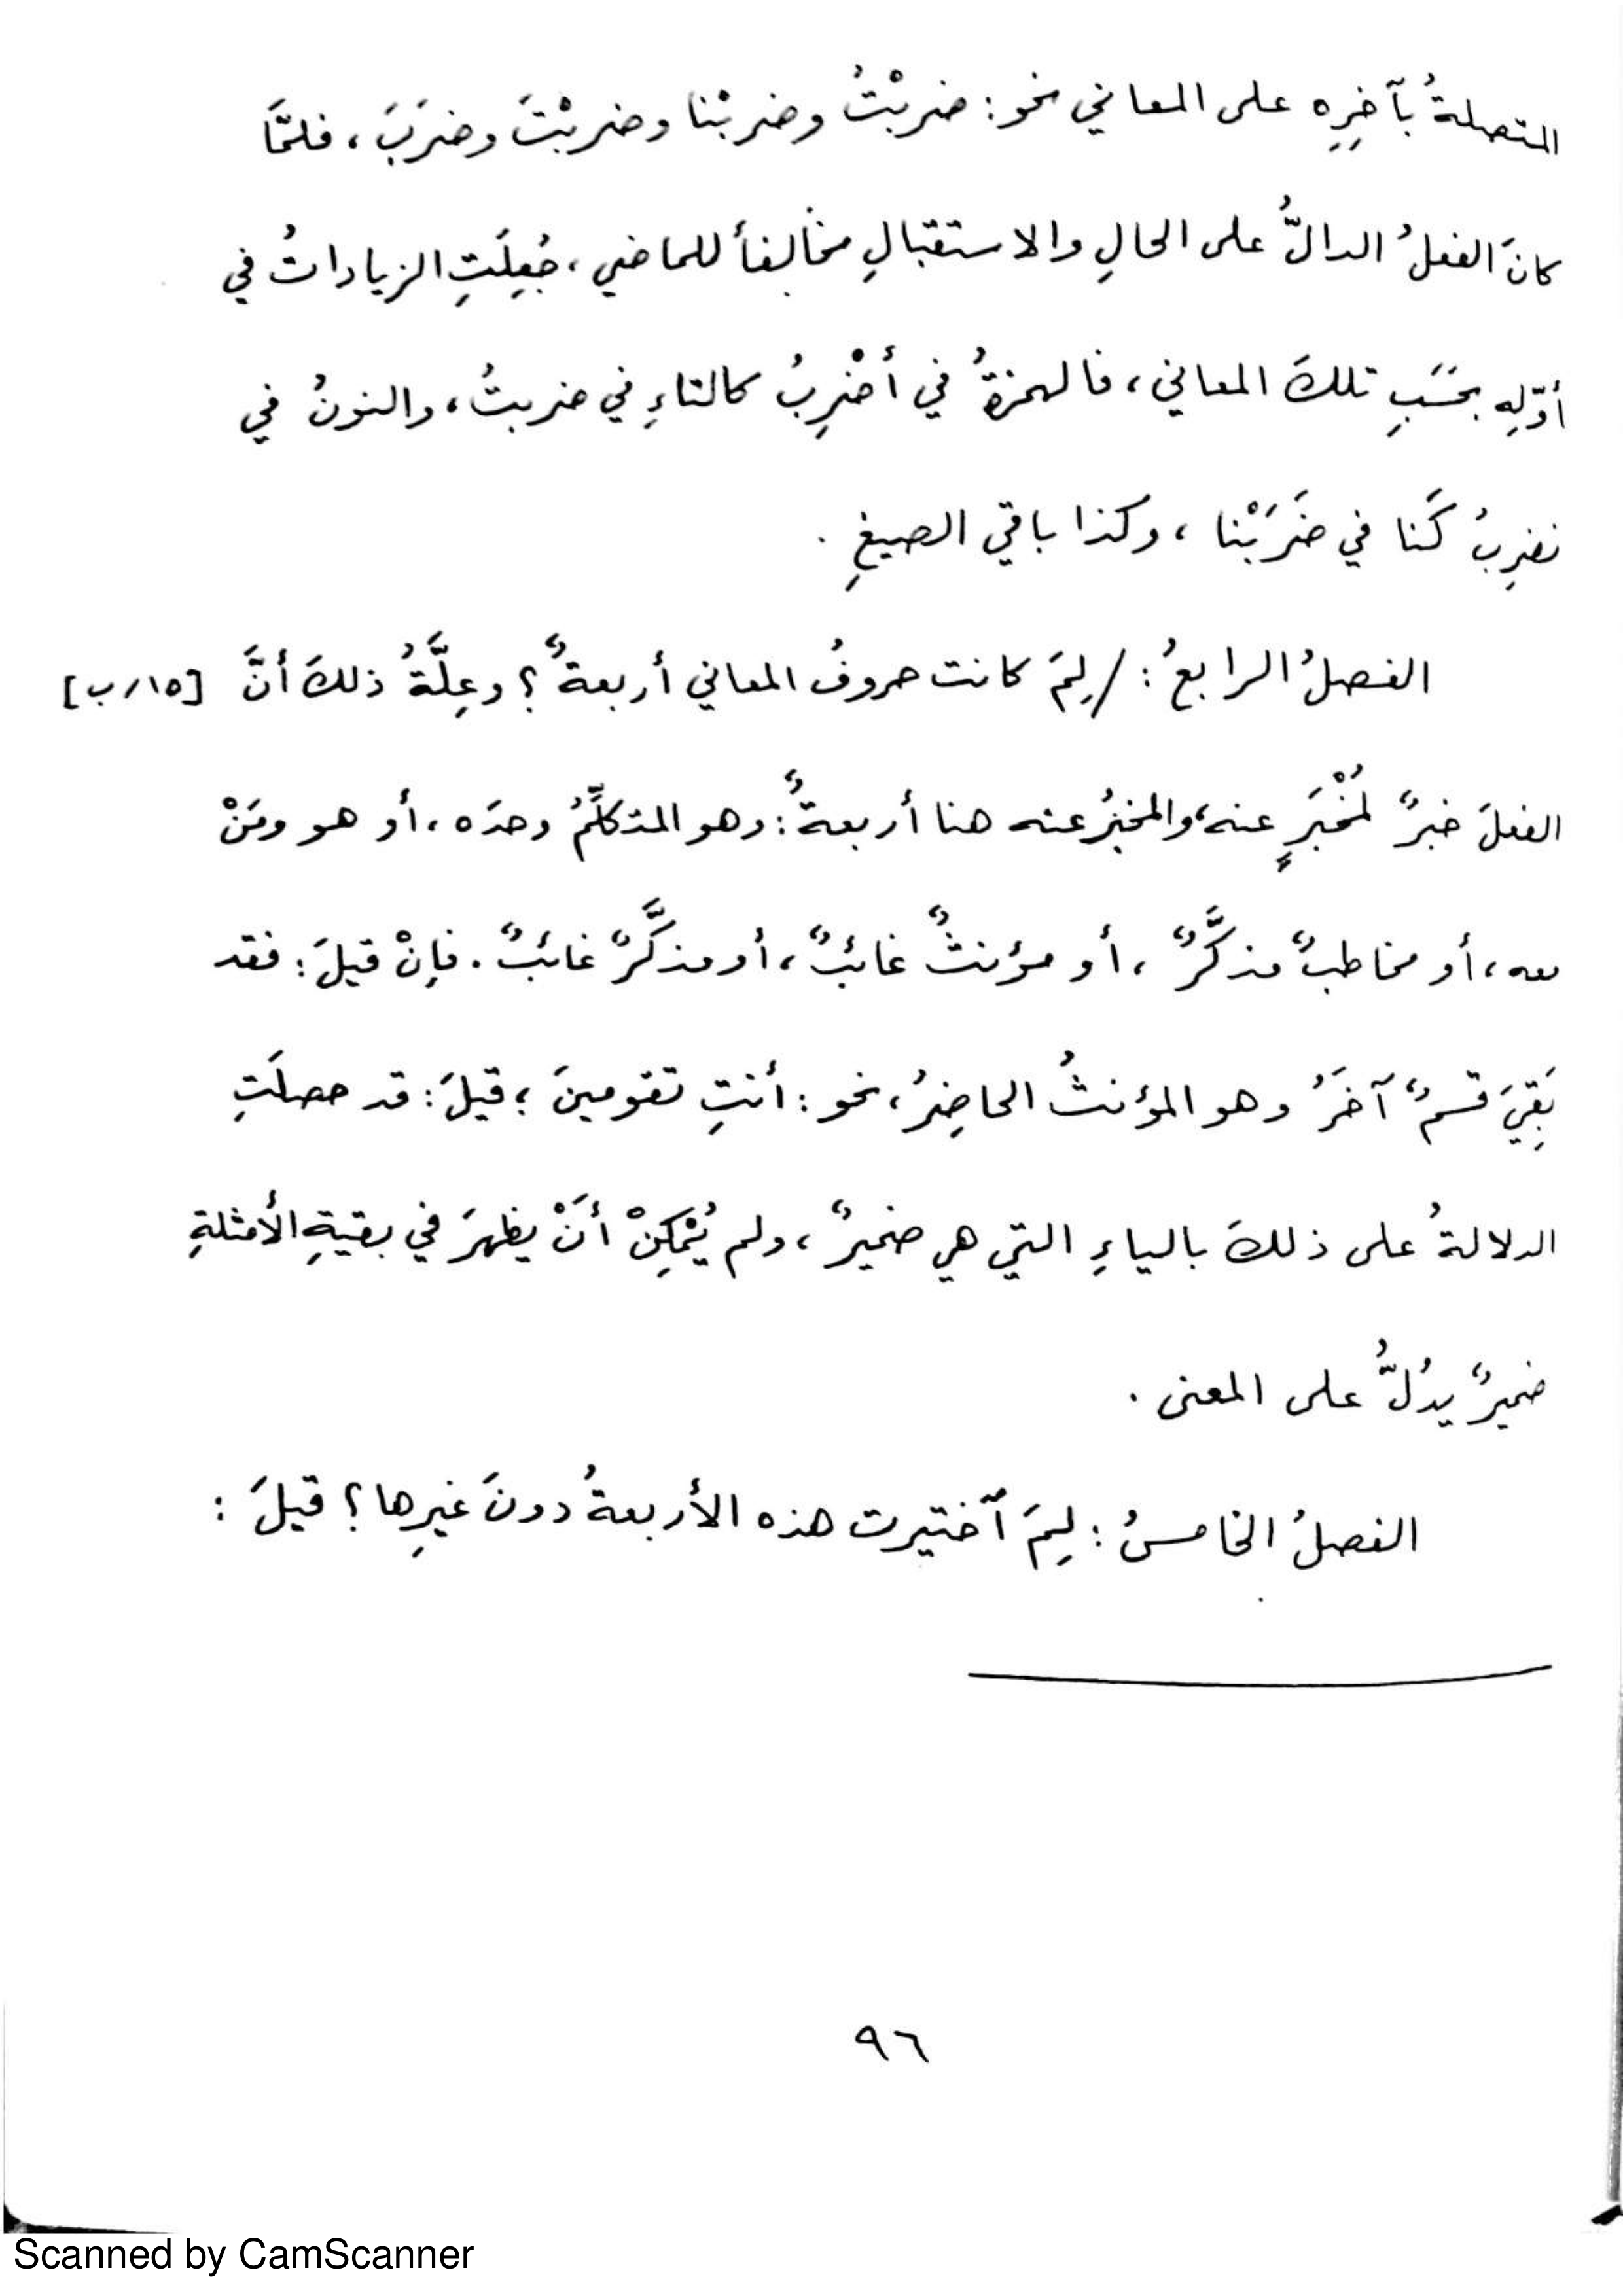 المتصلةُ بآخِرِه على المعاني نحو: ضربْتُ وضربْنا وضربْتَ وضرَبَ، فلمَّا
كانَ الفعلُ الدالُّ على الحالِ والاستقبالِ مخالفاً للماضي، جُعِلَتِ الزياداتُ في
أوّلِه بحَسَبِ تلكَ المعاني، فالهمزةُ في أضْرِبُ كالتاءِ في ضربتُ، والنونُ في
نضرِبُ كَنا في ضَرَبْنا، وكذا باقي الصيغِ.
الفصلُ الرابعُ: /لِمَ كانت حروفُ المعاني أربعةً؟ وعِلَّةُ ذلكَ أنَّ [١٥/ب]
الفعلَ خبرٌ لمُخْبَرٍ عنه، والمخبَرُ عنه هنا أربعةٌ: وهو المتكلِّمُ وحدَه، أو هو ومَنْ
معه، أو مخاطبٌ مذكَّرٌ، أو مؤنثٌ غائبٌ، أو مذكَّرٌ غائبٌ. فإنْ قيلَ: فقد
بَقِيَ قسمٌ آخَرُ وهو المؤنثُ الحاضِرُ، نحو: أنتِ تقومينَ؛ قيلَ: قد حصلَتِ
الدلالةُ على ذلكَ بالياءِ التي هي ضميرٌ، ولم يُمْكِنْ أنْ يظهرَ في بقيةِ الأمثلةِ
ضميرٌ يدُلُّ على المعنى.
الفصلُ الخامسُ: لِمَ ٱختيرت هذه الأربعةُ دونَ غيرِها؟ قيلَ:
٩٦
Scanned by CamScanner